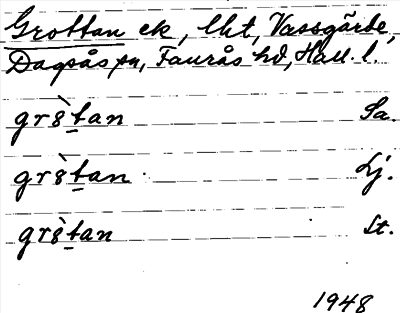 Grottan ek, lht, Vassgårde,
Dagsås sn, Faurås hd, Hall. l.
gr8̀t̲an Sa.
gr8̀t̲an Lj.
gr8̀t̲an St.
1948